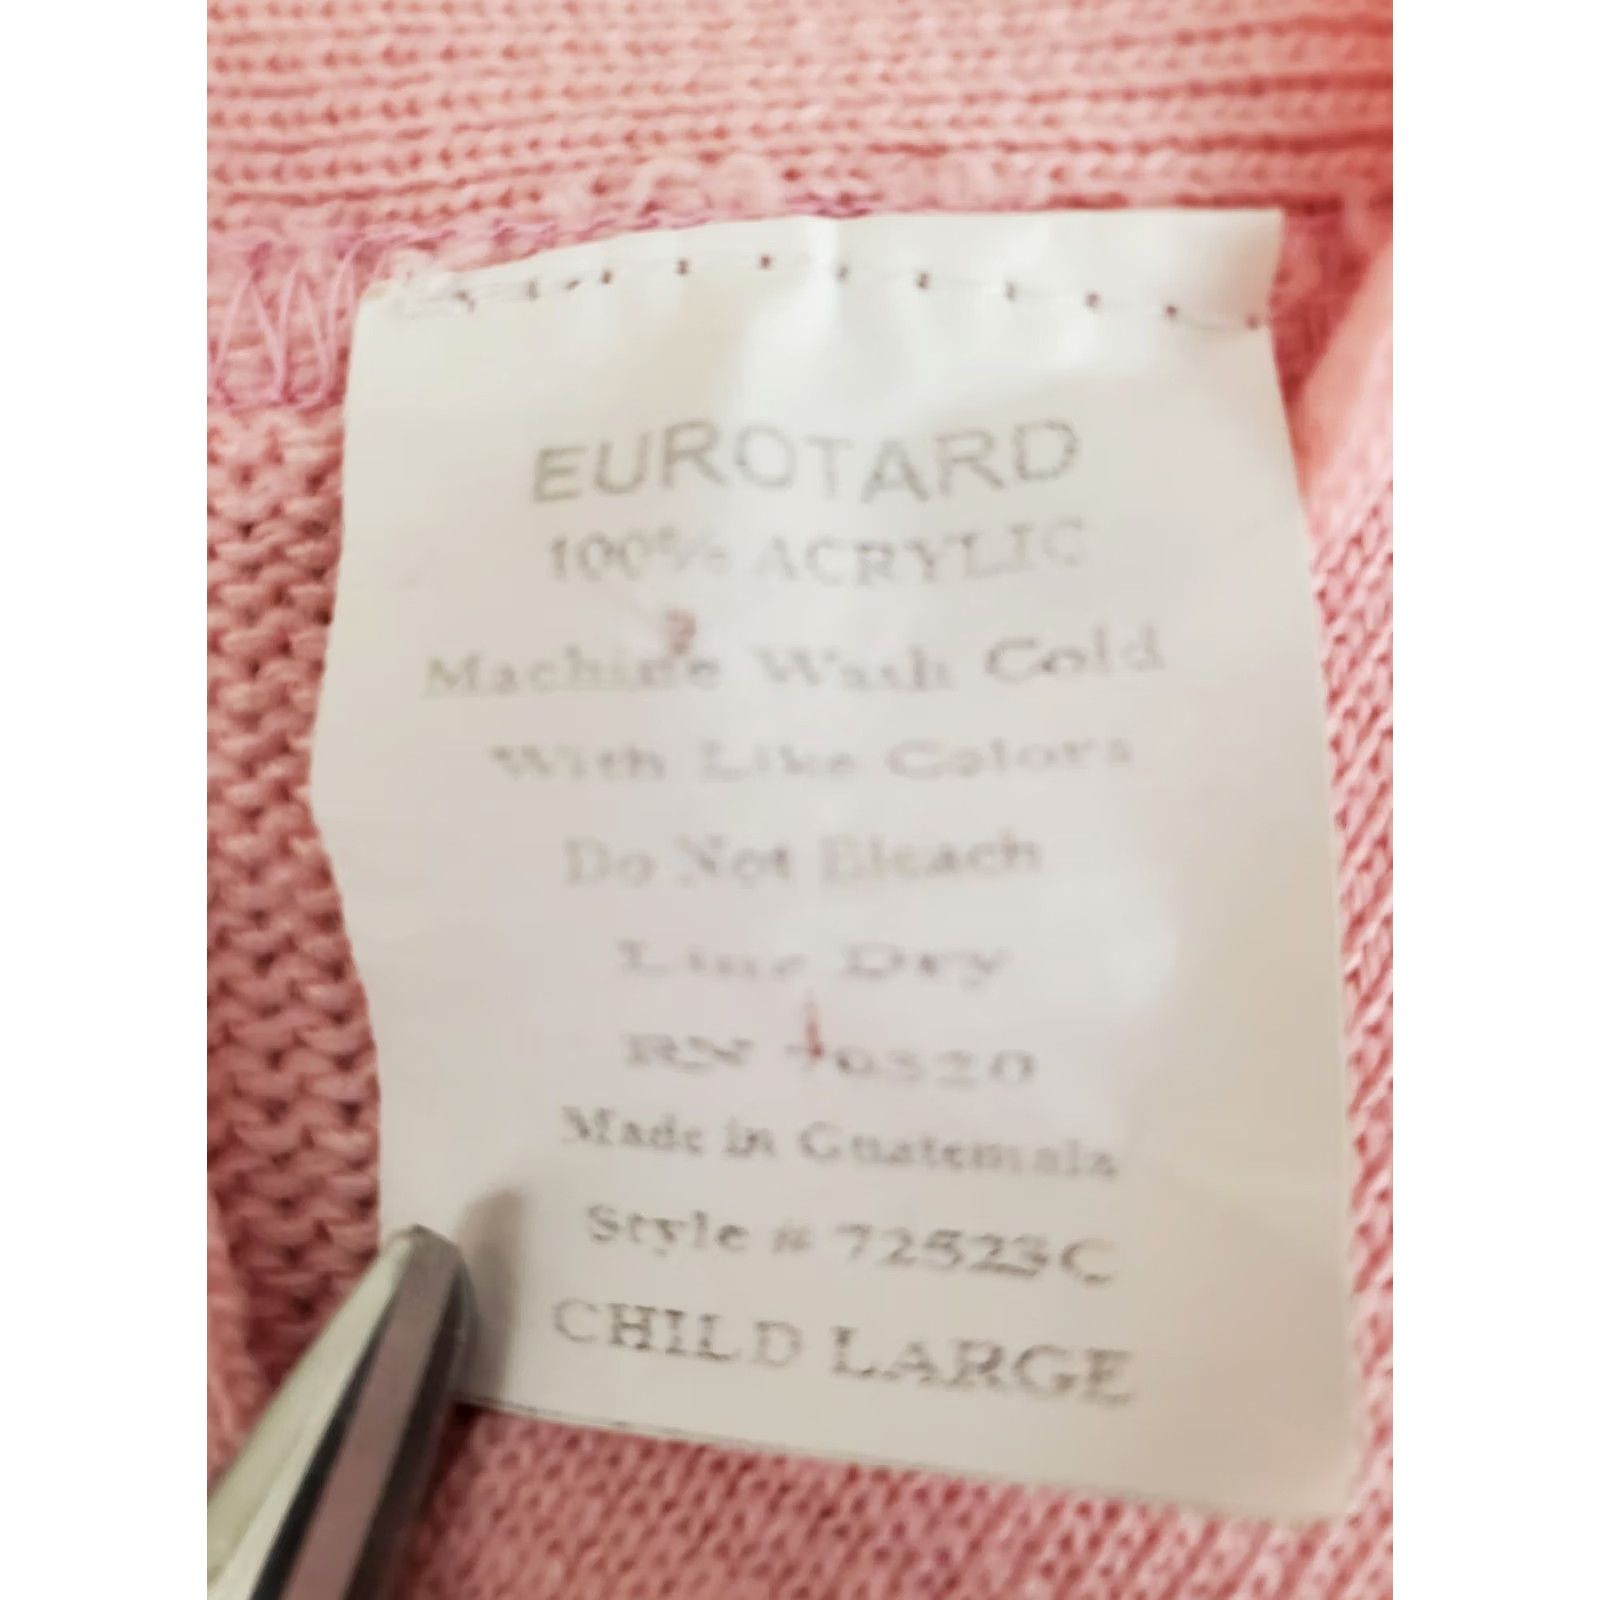 EUROTARD
100% ACRYLIC
Machine Wash Cold
With Like Colors
Do Not Bleach
Line Dry
RN
Made in Guatemala
Style # 72523C
CHILD LARGE